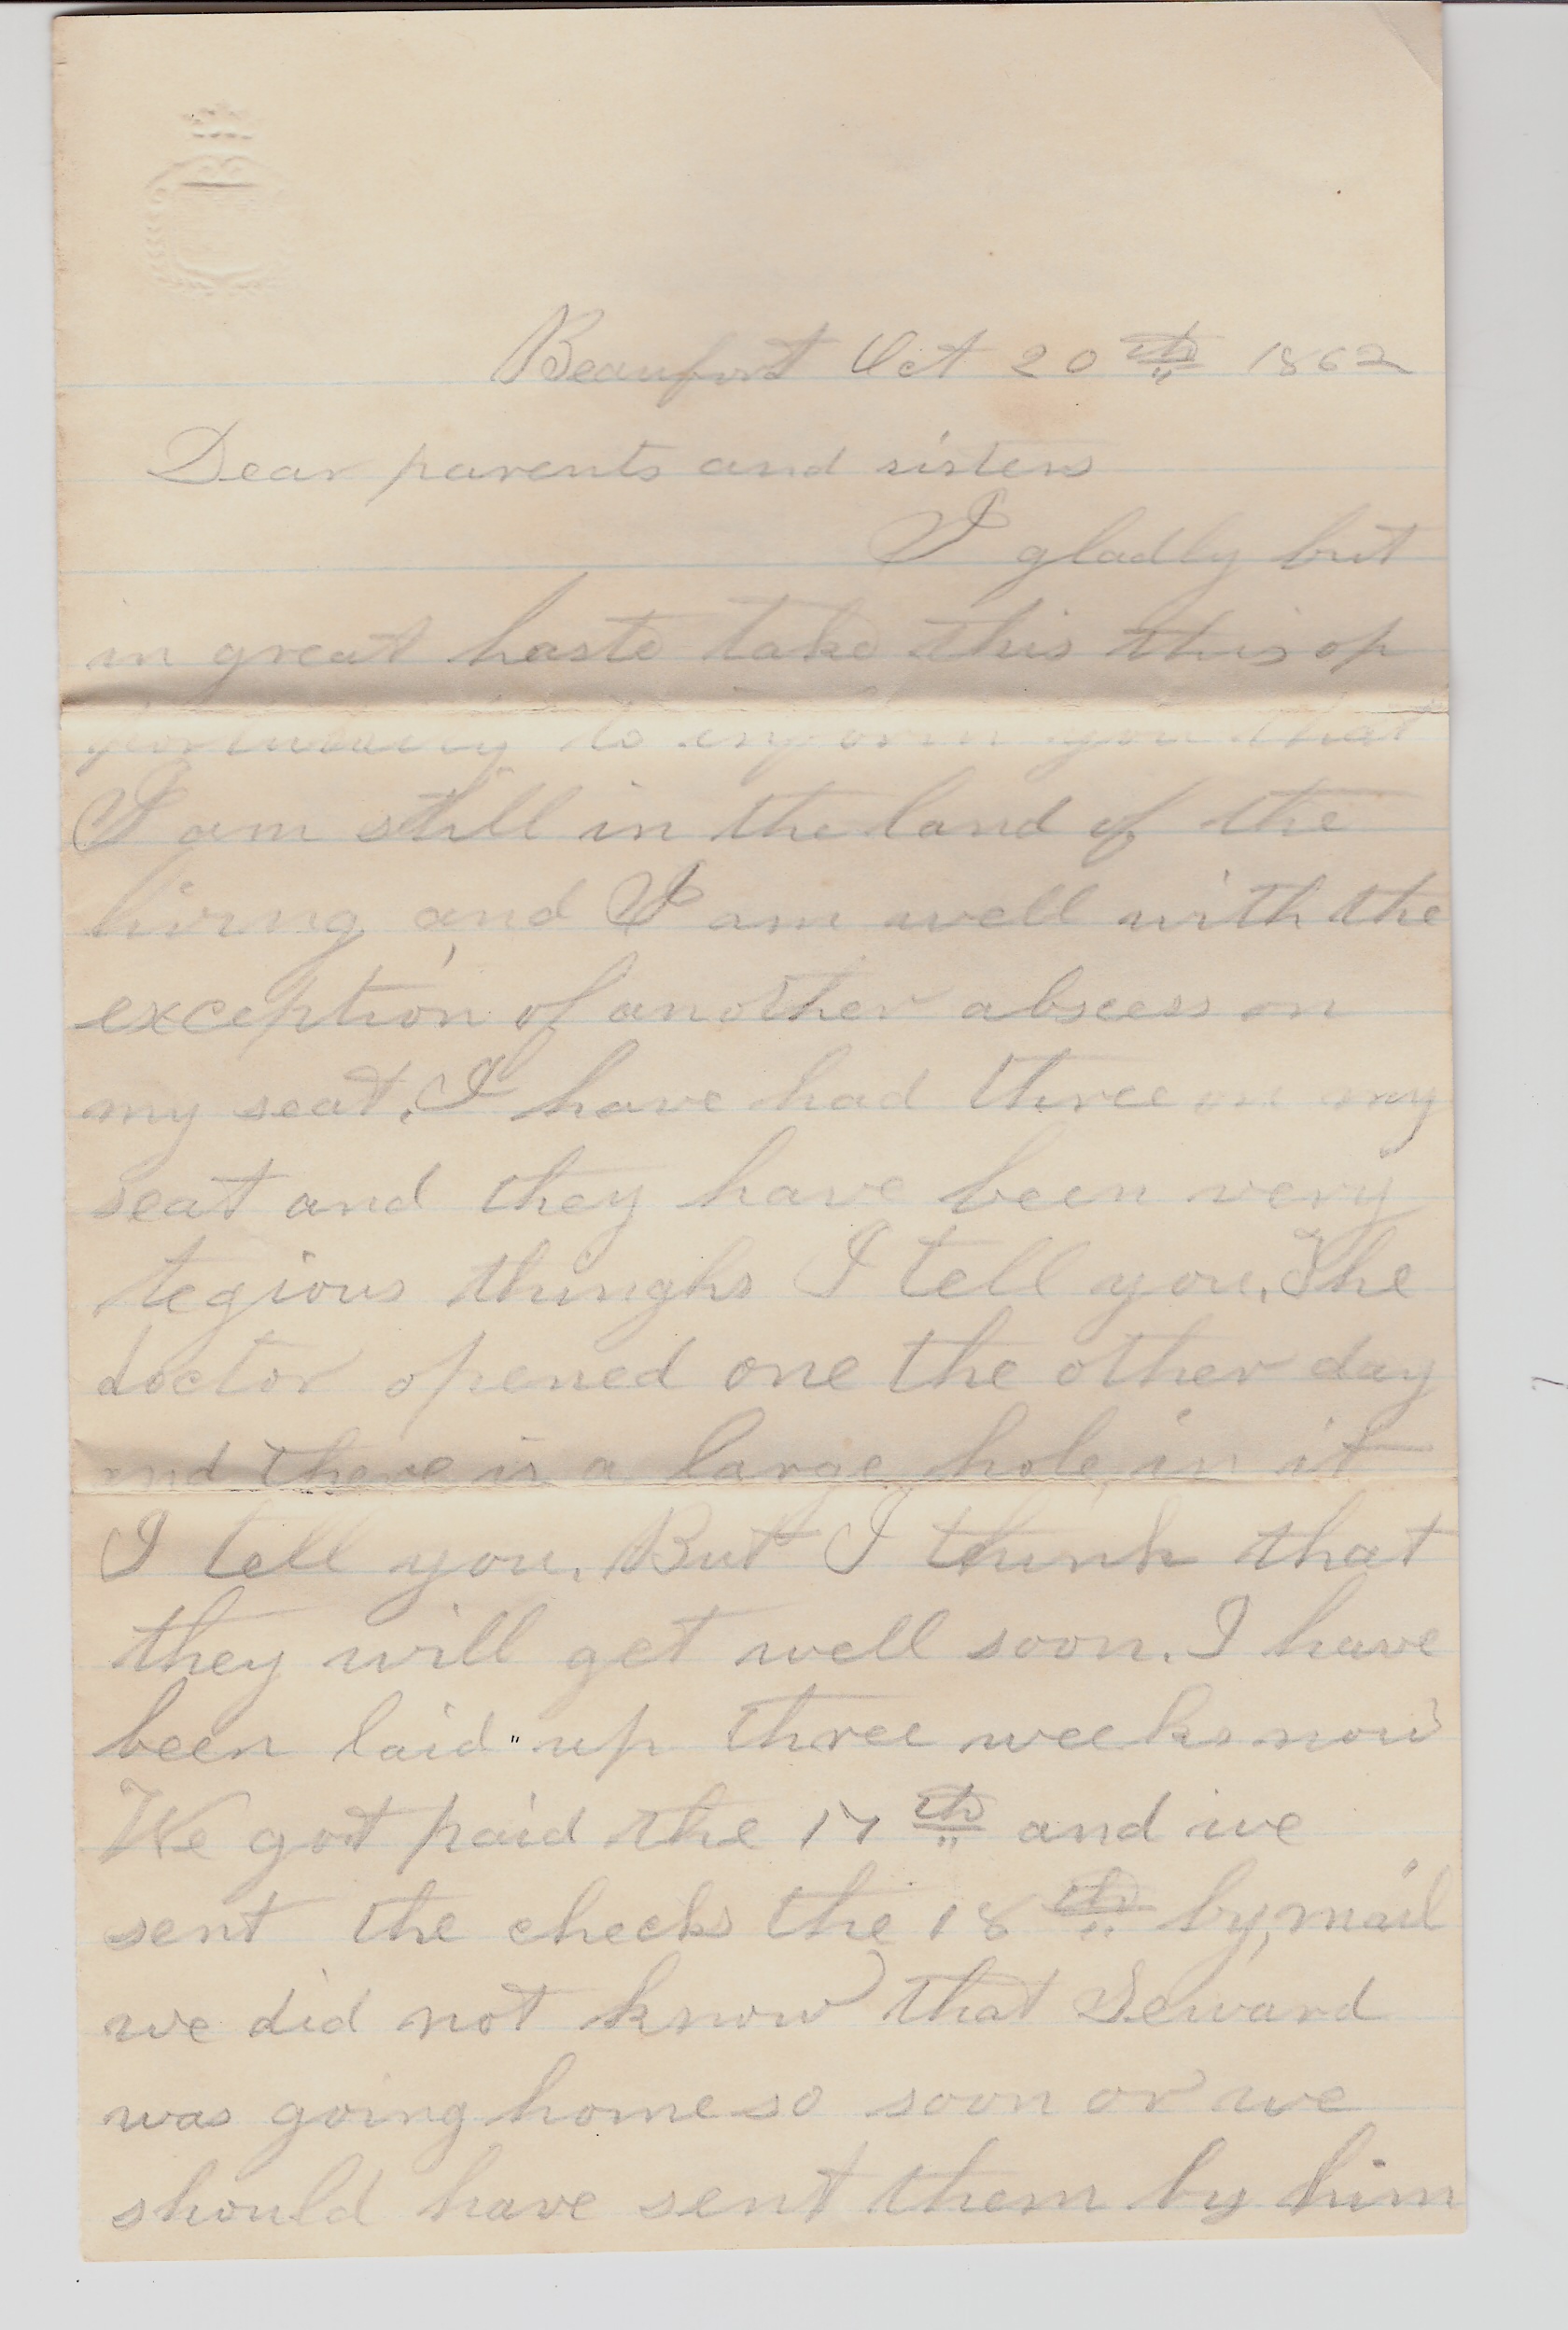 Beaufort Oct 20th 1862
Dear parents and sisters
I gladly but
in great haste take this this op
portunity to inform you that
I am still in the land of the
living, and I am well with the
exception of another abscess on
my seat. I have had three on my
seat and they have been very
tegious thinghs I tell you. The
doctor opened one the other day
and there is a large hole in it
I tell you. But I think that
they will get well soon. I have
been laid" up three weeks now
We got paid the 17th and we
sent the checks the 18th by, mail
we did not know that Seward
was going home so soon or we
should have sent them by him